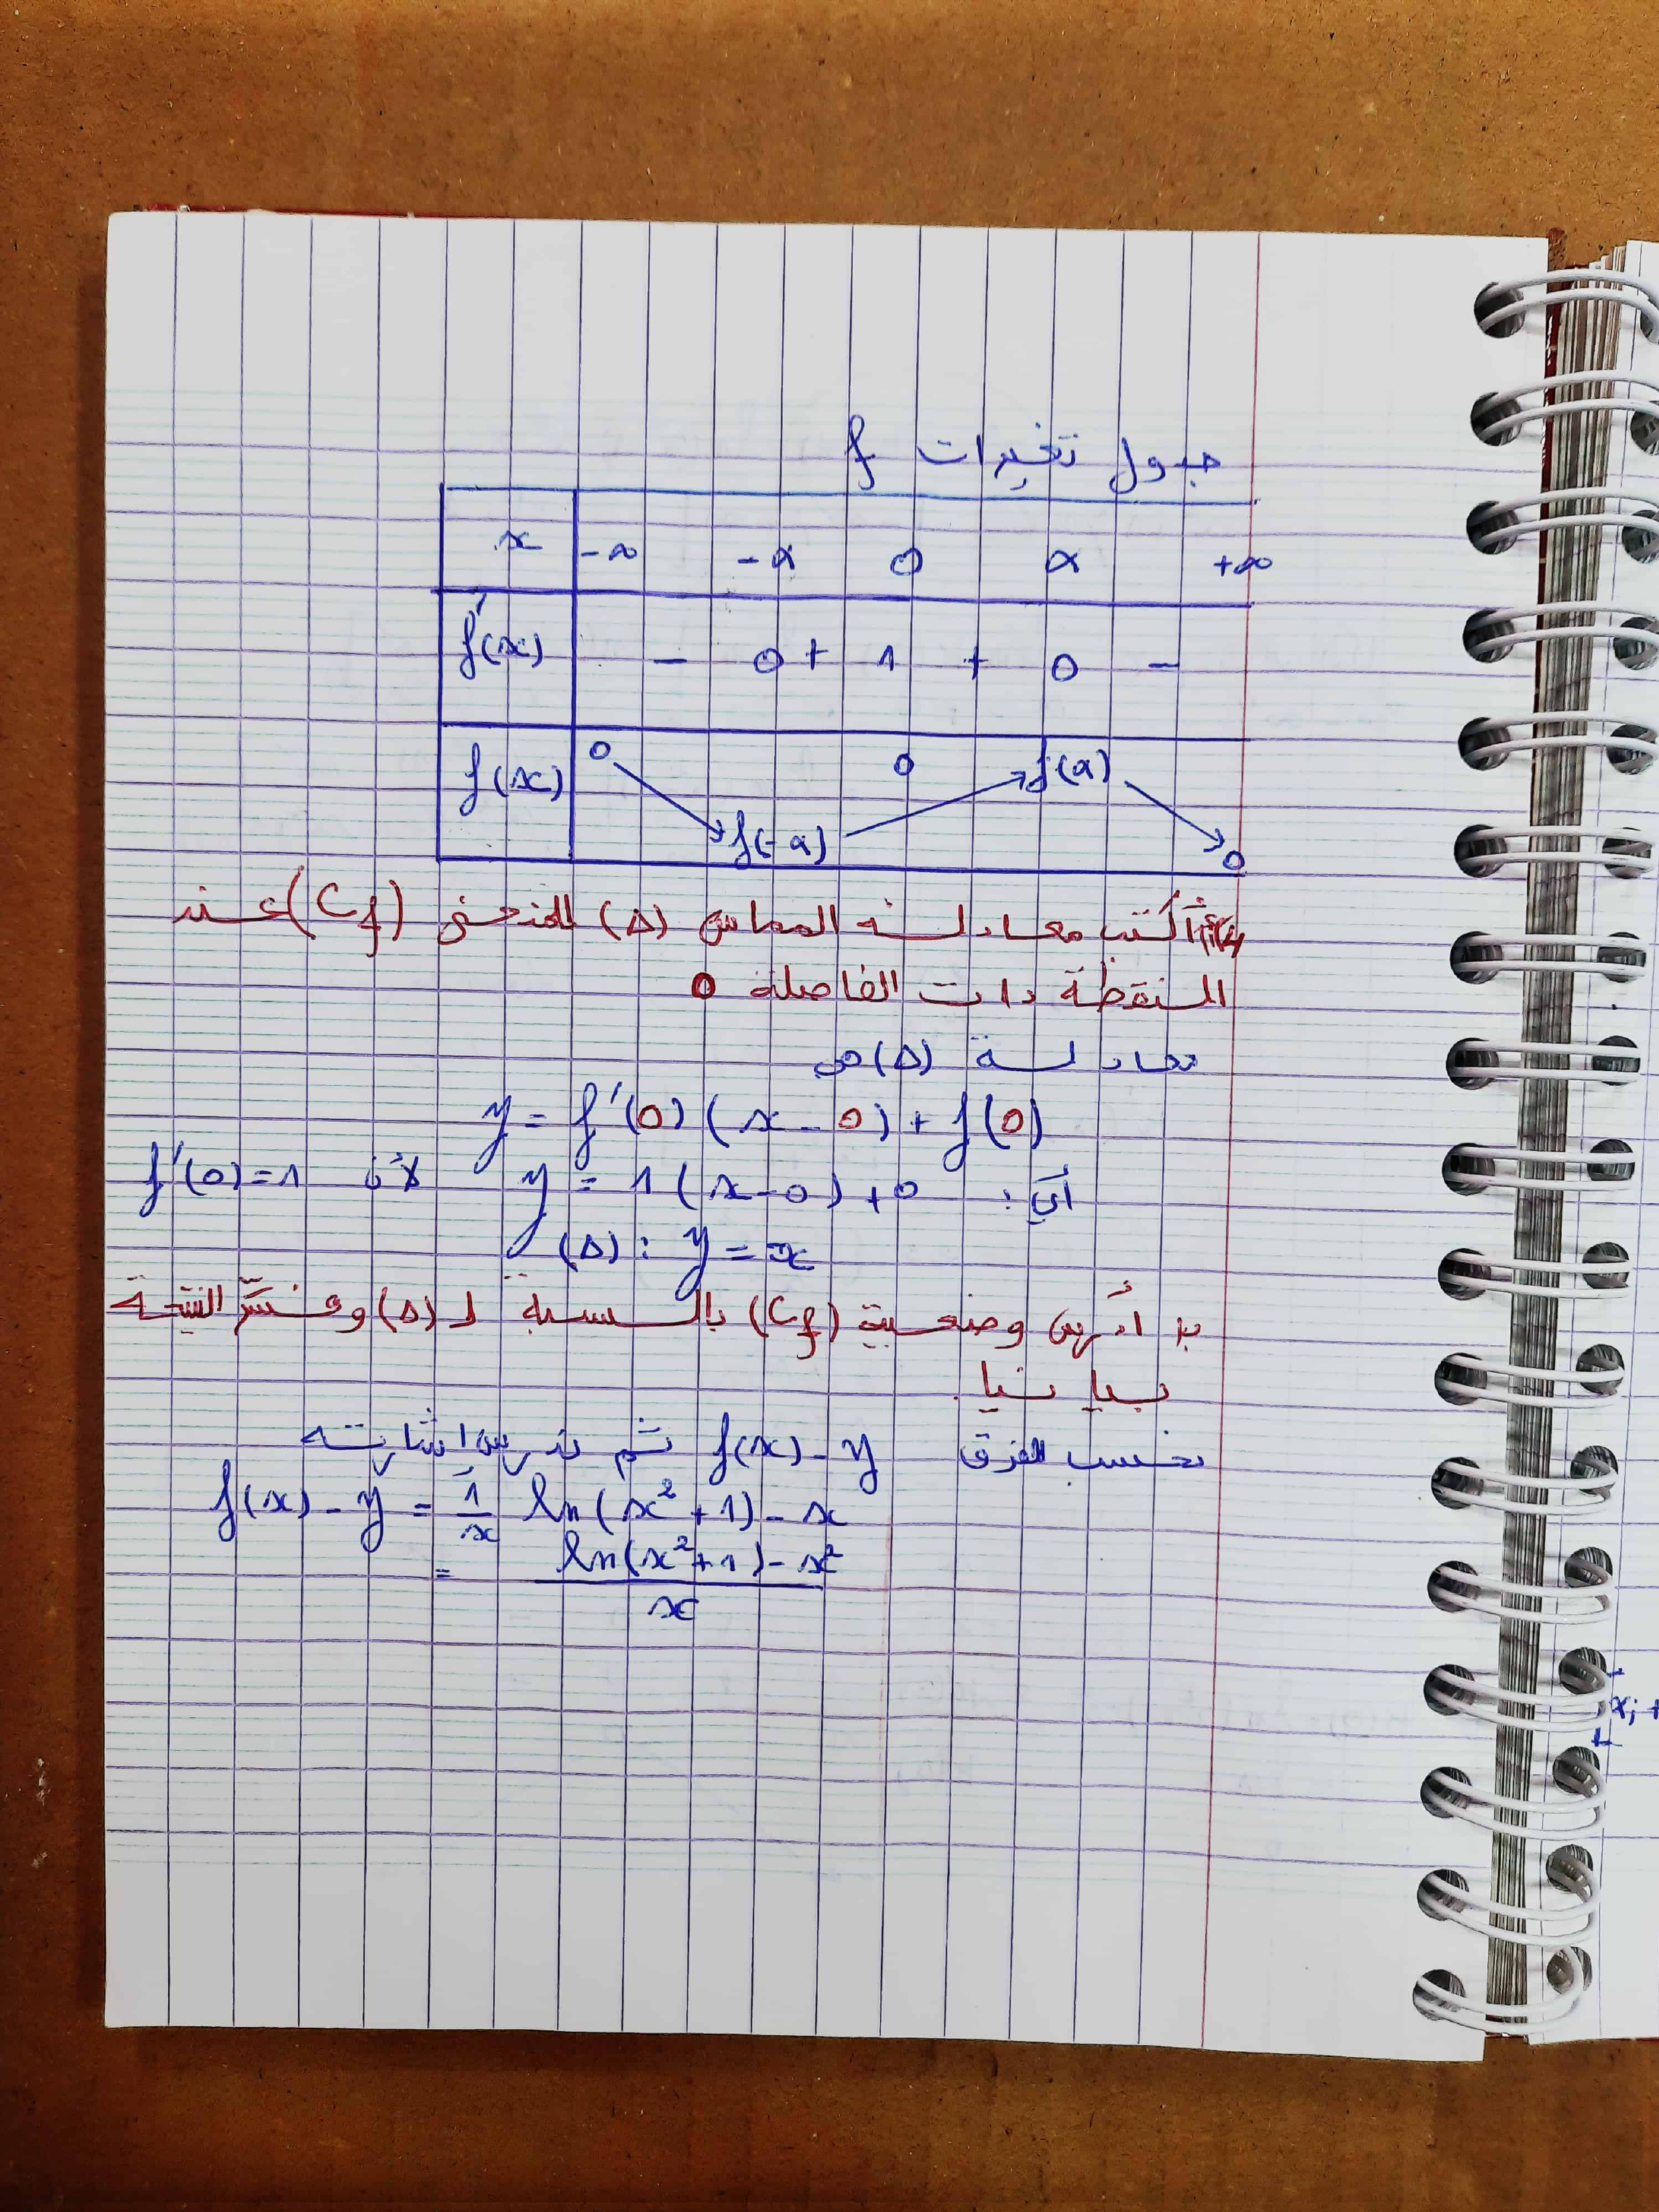 جدول تغيرات f
x -∞ -α 0 α +∞
f'(x) - 0 + 1 + 0 -
f(x) 0 f(-α) 0 f(α) 0
أكتب معادلة المماس (Δ) للمنحنى (Cf) عند
النقطة ذات الفاصلة 0
معادلة (Δ) هي
y = f'(0) (x - 0) + f(0)
أي : y = 1 (x - 0) + 0 لأن f'(0) = 1
(Δ) : y = x
ب/ أدرس وضعية (Cf) بالنسبة لـ (Δ) وفسّر النتيجة
بيانيا .
نحسب الفرق f(x) - y ثم ندرس إشارته
f(x) - y = 1/x ln(x² + 1) - x
= (ln(x² + 1) - x²)/x